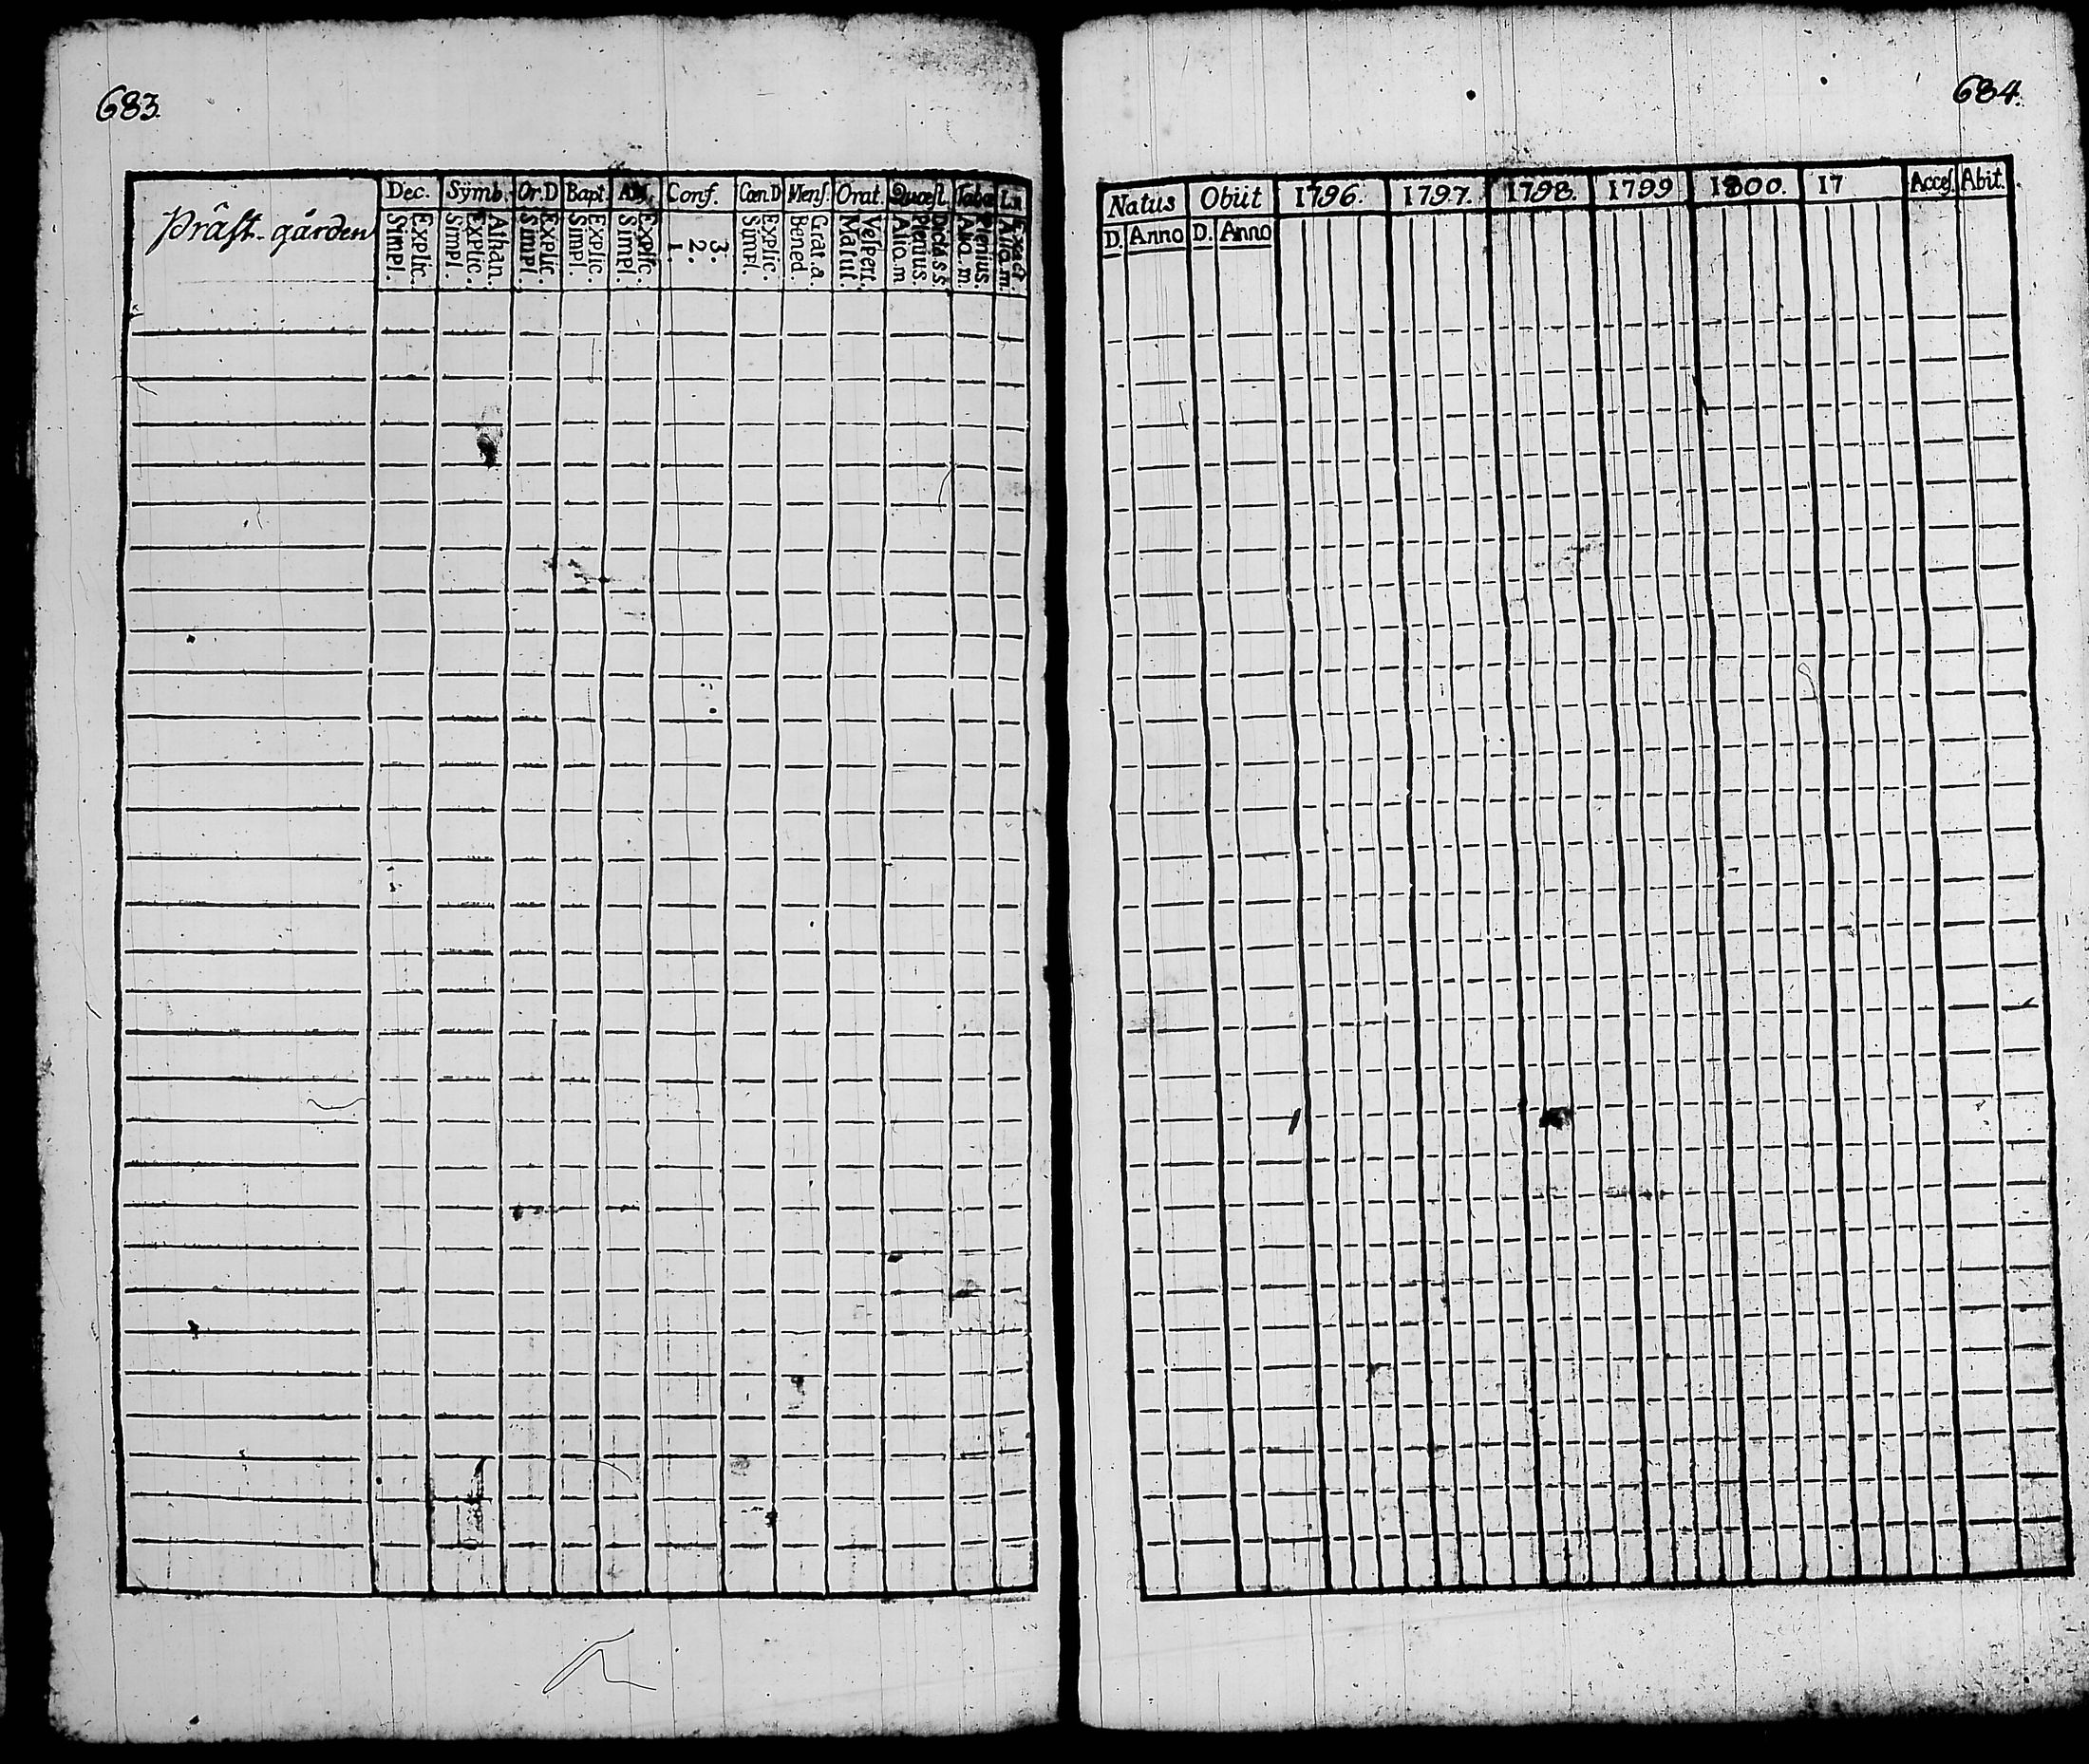 683.
Präst-gården
Dec. Symb. Or.D Bapt. Conf. Cœn.D Mens. Orat. Quæst. Taba Ln
Simpl. Explic. Simpl. Explic. Athan. Simpl. Explic. Simpl. Explic. Simpl. Explic. 1. 2. 3. Simpl. Explic. Bened. Grat.a. Matut. Vespert. Aliq.m Plenius. Dicta S.S. Aliq.m Plenius. Aliq.m Exact.
684.
Natus Obiit 1796. 1797. 1798. 1799 1800. 17 Acces. Abit.
D. Anno D. Anno